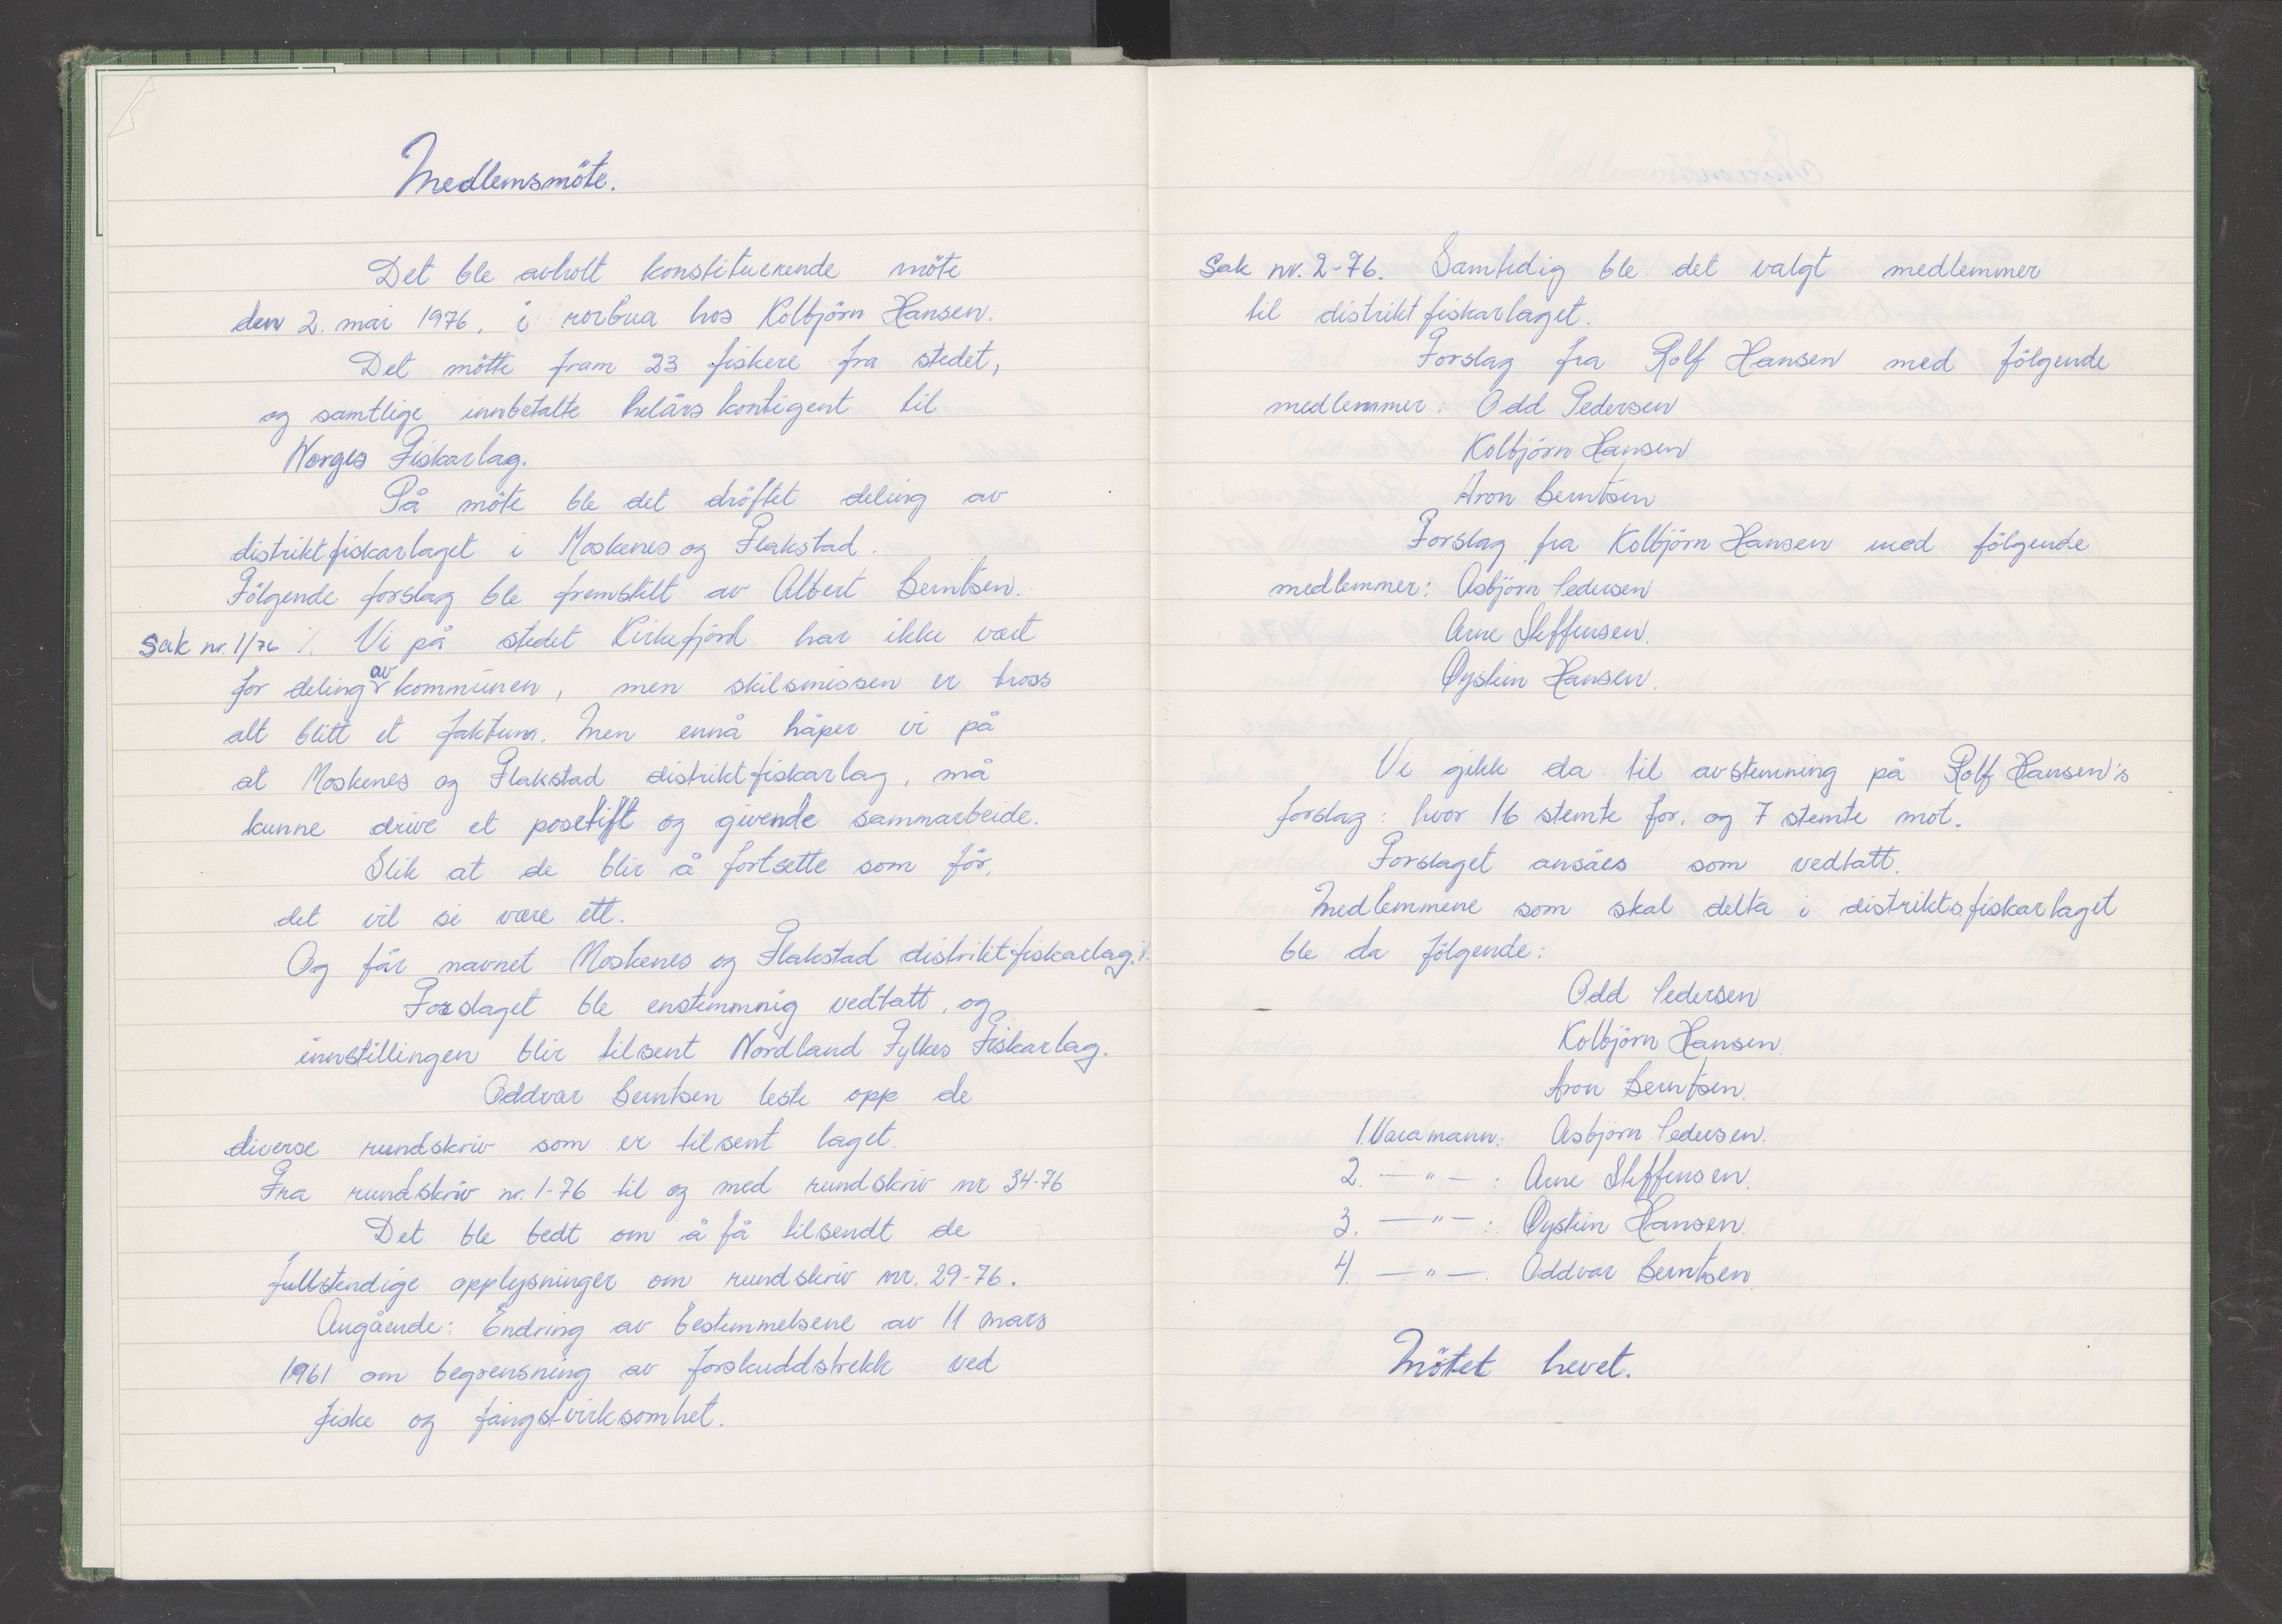 Medlemsmöte.
Det ble avholt konstituerende möte
den 2. mai 1976. i rorbua hos Kolbjörn Hansen.
Det mötte fram 23 fiskere fra stedet,
og samtlige innbetalte helårs kontigent til
Norges Fiskarlag.
På möte ble det dröftet deling av
distriktfiskarlaget i Moskenes og Flakstad.
Fölgende forslag ble fremstilt av Albert Berntsen.
Sak nr. 1/76 ./. Vi på stedet Kirkefjörd har ikke vært
for deling av kommunen, men skilsmissen er tross
alt blitt et faktum. Men ennå håper vi på
at Moskenes og Flakstad distriktfiskarlag, må
kunne drive et posetift og givende sammarbeide.
Slik at de blir å fortsette som för,
det vil si være ett.
Og får navnet Moskenes og Flakstad distriktfiskarlag.
Forslaget ble enstemmnig vedtatt, og
innstillingen blir tilsent Nordland Fylkes Fiskarlag.
Oddvar Berntsen leste opp de
diverse rundskriv som er tilsent laget.
Fra rundskriv nr. 1-76 til og med rundskriv nr 34-76
Det ble bedt om å få tilsendt de
fullstendige opplysninger om rundskriv nr. 29-76.
Angående: Endring av bestemmelsene av 11 mars
1961 om begrensning av forskuddstrekk ved
fiske og fangstvirksomhet.
Sak nr. 2-76. Samtidig ble det valgt medlemmer
til distriktfiskarlaget.
Forslag fra Rolf Hansen med fölgende
medlemmer: Odd Pedersen
Kolbjörn Hansen
Aron Berntsen
Forslag fra Kolbjörn Hansen med fölgende
medlemmer: Asbjörn Pedersen
Arne Steffensen.
Øystein Hansen.
Vi gikk da til avstemning på Rolf Hansen's
forslag: hvor 16 stemte for. og 7 stemte mot.
Forslaget ansåes som vedtatt.
Medlemmene som skal delta i distriktsfiskarlaget
ble da fölgende:
Odd Pedersen
Kolbjörn Hansen.
Aron Berntsen.
1. Varamann: Asbjörn Pedersen.
2. — " — : Arne Steffensen.
3. — " — : Øystein Hansen.
4. — " — . Oddvar Berntsen.
Mötet hevet.